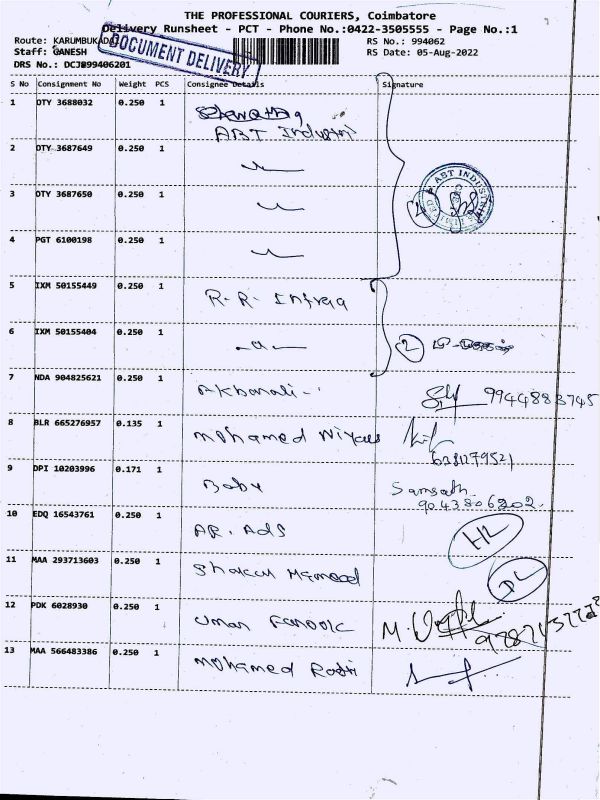 THE PROFESSIONAL COURIERS, Coimbatore
Delivery Runsheet - PCT - Phone No.:0422-3505555 - Page No.:1
Route: KARUMBUKADAI
RS No.: 994062
Staff: GANESH
RS Date: 05-Aug-2022
DOCUMENT DELIVERY
DRS No.: DCJB99406201
S No Consignment No Weight PCS Consignee Details Signature
1 DTY 3688032 0.250 1
ABT Industri
ABT INDUSTRI
2 DTY 3687649 0.250 1
3 DTY 3687650 0.250 1
4
4 PGT 6100198 0.250 1
5 IXM 50155449 0.250 1 R.R. Infraa
6 IXM 50155404 0.250 1 -a- 2
7 NDA 904825621 0.250 1 Akbarali 9944883745
8 BLR 665276957 0.135 1 mohamed Niyaus
9 DPI 10203996 0.171 1 Baby Samsath
9043806202
10 EDQ 16543761 0.250 1 AR. Ads HL
11 MAA 293713603 0.250 1 DL
12 PDK 6028930 0.250 1 Umar Farook
13 MAA 566483386 0.250 1 mohamed Rafi